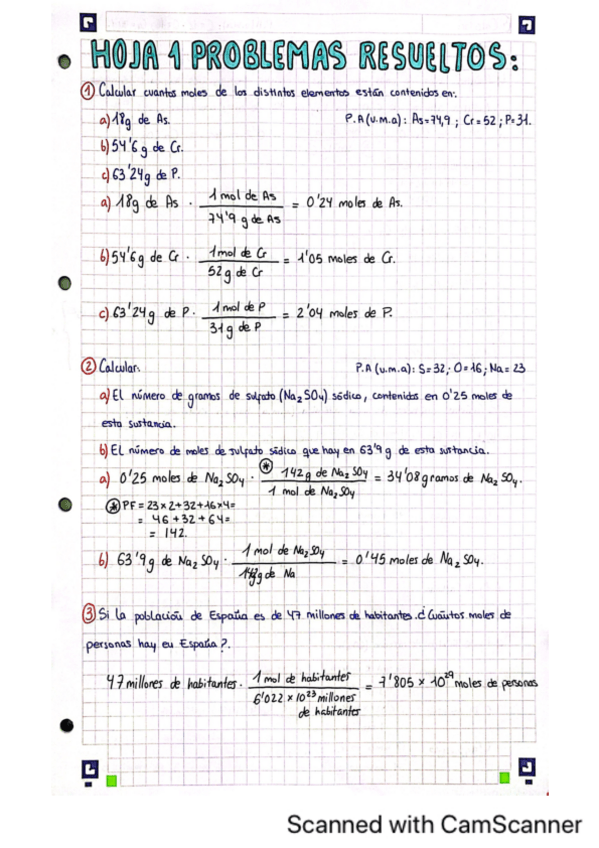 HOJA 1 PROBLEMAS RESUELTOS:
① Calcular cuantos moles de los distintos elementos están contenidos en:
a) 18g de As. P.A (u.m.a): As=74,9 ; Cr=52 ; P=31.
b) 54'6 g de Cr.
c) 63'24g de P.
a) 18g de As · 1 mol de As / 74'9 g de As = 0'24 moles de As.
b) 54'6g de Cr · 1mol de Cr / 52 g de Cr = 1'05 moles de Cr.
c) 63'24g de P · 1 mol de P / 31g de P = 2'04 moles de P.
② Calcular: P.A (u.m.a): S=32; O=16; Na=23
a) El número de gramos de sulfato (Na₂SO₄) sódico, contenidos en 0'25 moles de
esta sustancia.
b) El número de moles de sulfato sódico que hay en 63'9 g de esta sustancia.
a) 0'25 moles de Na₂SO₄ · ⊛ 142g de Na₂SO₄ / 1 mol de Na₂SO₄ = 34'08 gramos de Na₂SO₄.
⊛ PF = 23×2+32+16×4=
= 46+32+64=
= 142.
b) 63'9g de Na₂SO₄ · 1 mol de Na₂SO₄ / 142g de Na = 0'45 moles de Na₂SO₄.
③ Si la población de España es de 47 millones de habitantes. ¿Cuántos moles de
personas hay en España?.
47 millones de habitantes · 1 mol de habitantes / 6'022 × 10²³ millones de habitantes = 7'805 × 10²⁹ moles de personas
Scanned with CamScanner